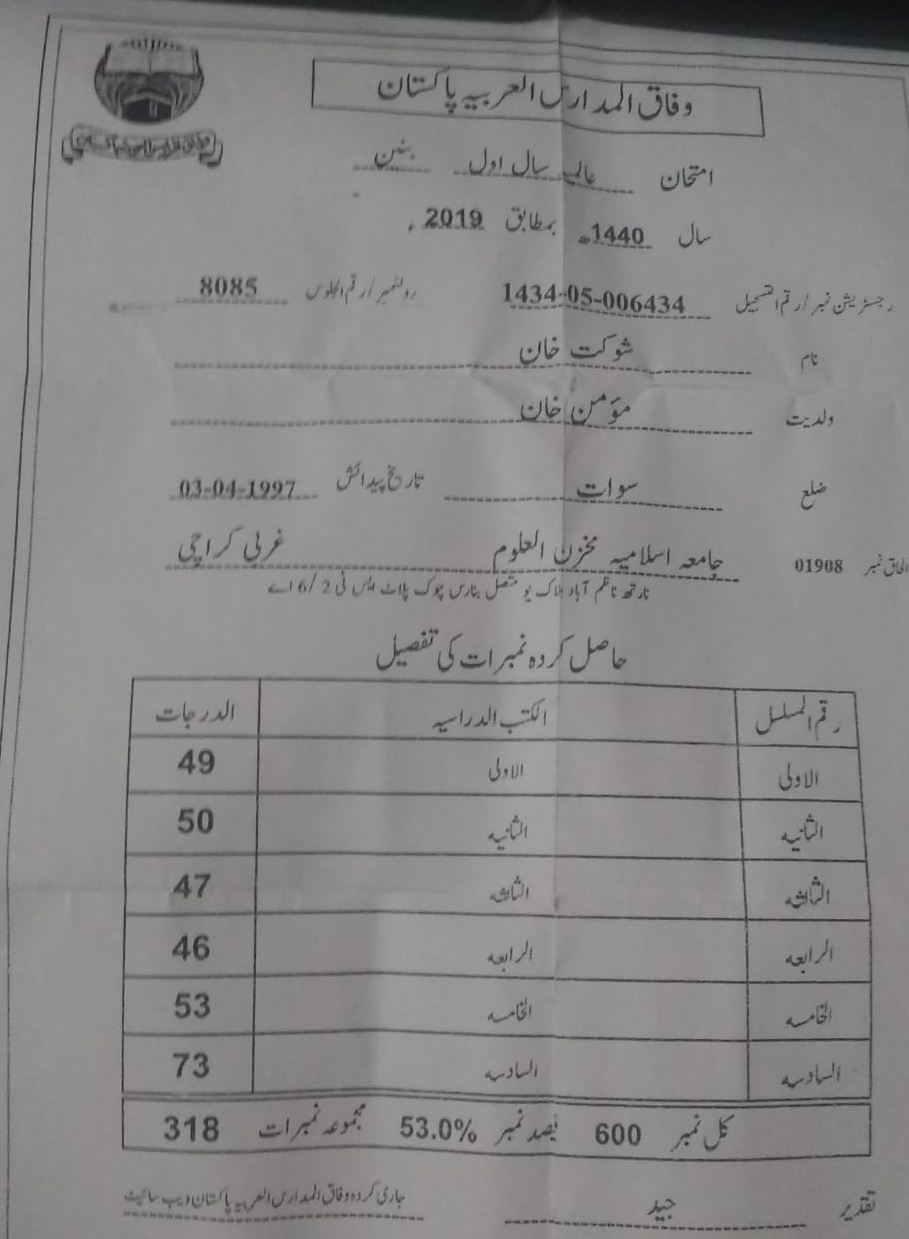 وفاق المدارس العربیہ پاکستان
امتحان عالیہ سال اول بنین
سال 1440ھ بمطابق 2019ء
رجسٹریشن نمبر / رقم التسجیل 1434-05-006434 رولنمبر / رقم الجلوس 8085
نام شوکت خان
ولدیت مؤمن خان
ضلع سوات تاریخ پیدائش 03-04-1997
الحاق نمبر 01908 جامعہ اسلامیہ مخزن العلوم غربی کراچی
نارتھ ناظم آباد بلاک یو متصل بنارس چوک پلاٹ ایس ٹی 2/6 اے
حاصل کردہ نمبرات کی تفصیل
رقم المسلسل الکتب الدراسیہ الدرجات
الاولی الاولی 49
الثانیہ الثانیہ 50
الثالثہ الثالثہ 47
الرابعہ الرابعہ 46
الخامسہ الخامسہ 53
السادسہ السادسہ 73
کل نمبر 600 فیصد نمبر 53.0% مجموعہ نمبرات 318
تقدیر جید جاری کردہ وفاق المدارس العربیہ پاکستان ویب سائیٹ